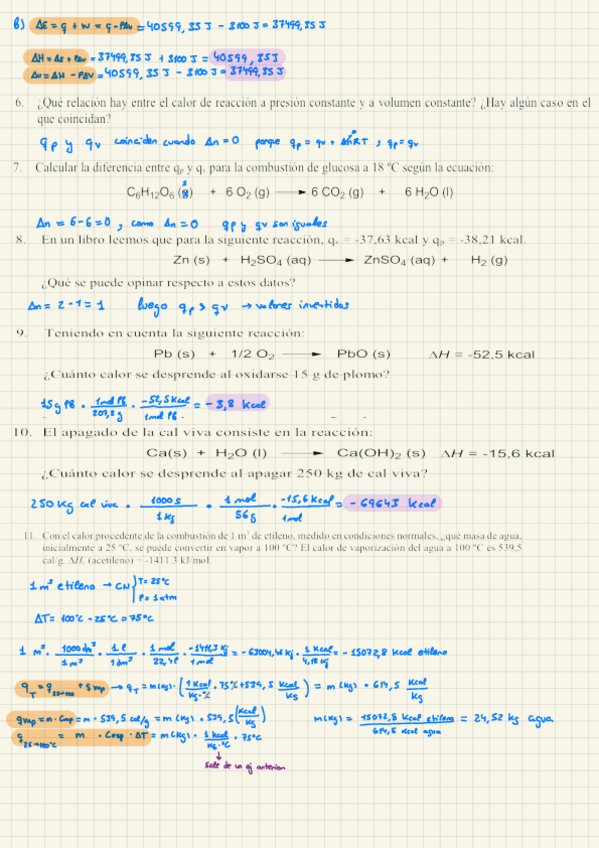 b) ΔE = q + w = q - PΔv = 40599,35 J - 3100 J = 37499,35 J
ΔH = ΔE + PΔv = 37499,35 J + 3100 J = 40599,35 J
Δu = ΔH - PΔv = 40599,35 J - 3100 J = 37499,35 J
6. ¿Qué relación hay entre el calor de reacción a presión constante y a volumen constante? ¿Hay algún caso en el
que coincidan?
qp y qv coinciden cuando Δn = 0 porque qp = qv + ΔnRT ; qp = qv
7. Calcular la diferencia entre qp y qv para la combustión de glucosa a 18 ºC según la ecuación:
C6H12O6 (s) + 6 O2 (g) → 6 CO2 (g) + 6 H2O (l)
Δn = 6-6 = 0 , como Δn = 0 qp y qv son iguales
8. En un libro leemos que para la siguiente reacción, qv = -37,63 kcal y qp = -38,21 kcal.
Zn (s) + H2SO4 (aq) → ZnSO4 (aq) + H2 (g)
¿Qué se puede opinar respecto a estos datos?
Δn = 2-1 = 1 luego qp > qv → valores invertidos
9. Teniendo en cuenta la siguiente reacción:
Pb (s) + 1/2 O2 → PbO (s) ΔH = -52,5 kcal
¿Cuánto calor se desprende al oxidarse 15 g de plomo?
15 g PB · 1 mol PB / 207,2 g · -52,5 Kcal / 1 mol PB = -3,8 Kcal
10. El apagado de la cal viva consiste en la reacción:
Ca(s) + H2O (l) → Ca(OH)2 (s) ΔH = -15,6 kcal
¿Cuánto calor se desprende al apagar 250 kg de cal viva?
250 Kg cal viva · 1000 g / 1 kg · 1 mol / 56 g · -15,6 Kcal / 1 mol = -69643 Kcal
11. Con el calor procedente de la combustión de 1 m³ de etileno, medido en condiciones normales, ¿qué masa de agua,
inicialmente a 25 ºC, se puede convertir en vapor a 100 ºC? El calor de vaporización del agua a 100 ºC es 539,5
cal/g. ΔHc (acetileno) = -1411.3 kJ/mol.
1 m³ etileno → CN { T = 25ºC
P = 1 atm
ΔT = 100ºC - 25ºC = 75ºC
1 m³ · 1000 dm³ / 1 m³ · 1 l / 1 dm³ · 1 mol / 22,4 l · -1411,3 Kj / 1 mol = -63004,46 Kj · 1 Kcal / 4,18 Kj = -15072,8 Kcal etileno
qT = q25→100 + qvap → qT = m (Kg) · (1 Kcal / Kg·ºC · 75ºC + 539,5 Kcal / Kg) = m (Kg) · 614,5 Kcal / Kg
qvap = m · Cvap = m · 539,5 cal/g = m (Kg) · 539,5 (Kcal / Kg)
m (Kg) = 15072,8 Kcal etileno / 614,5 Kcal agua = 24,52 kg agua
q25→100ºC = m · Cesp · ΔT = m (Kg) · 1 Kcal / Kg·ºC · 75ºC
sale de un ej anterior